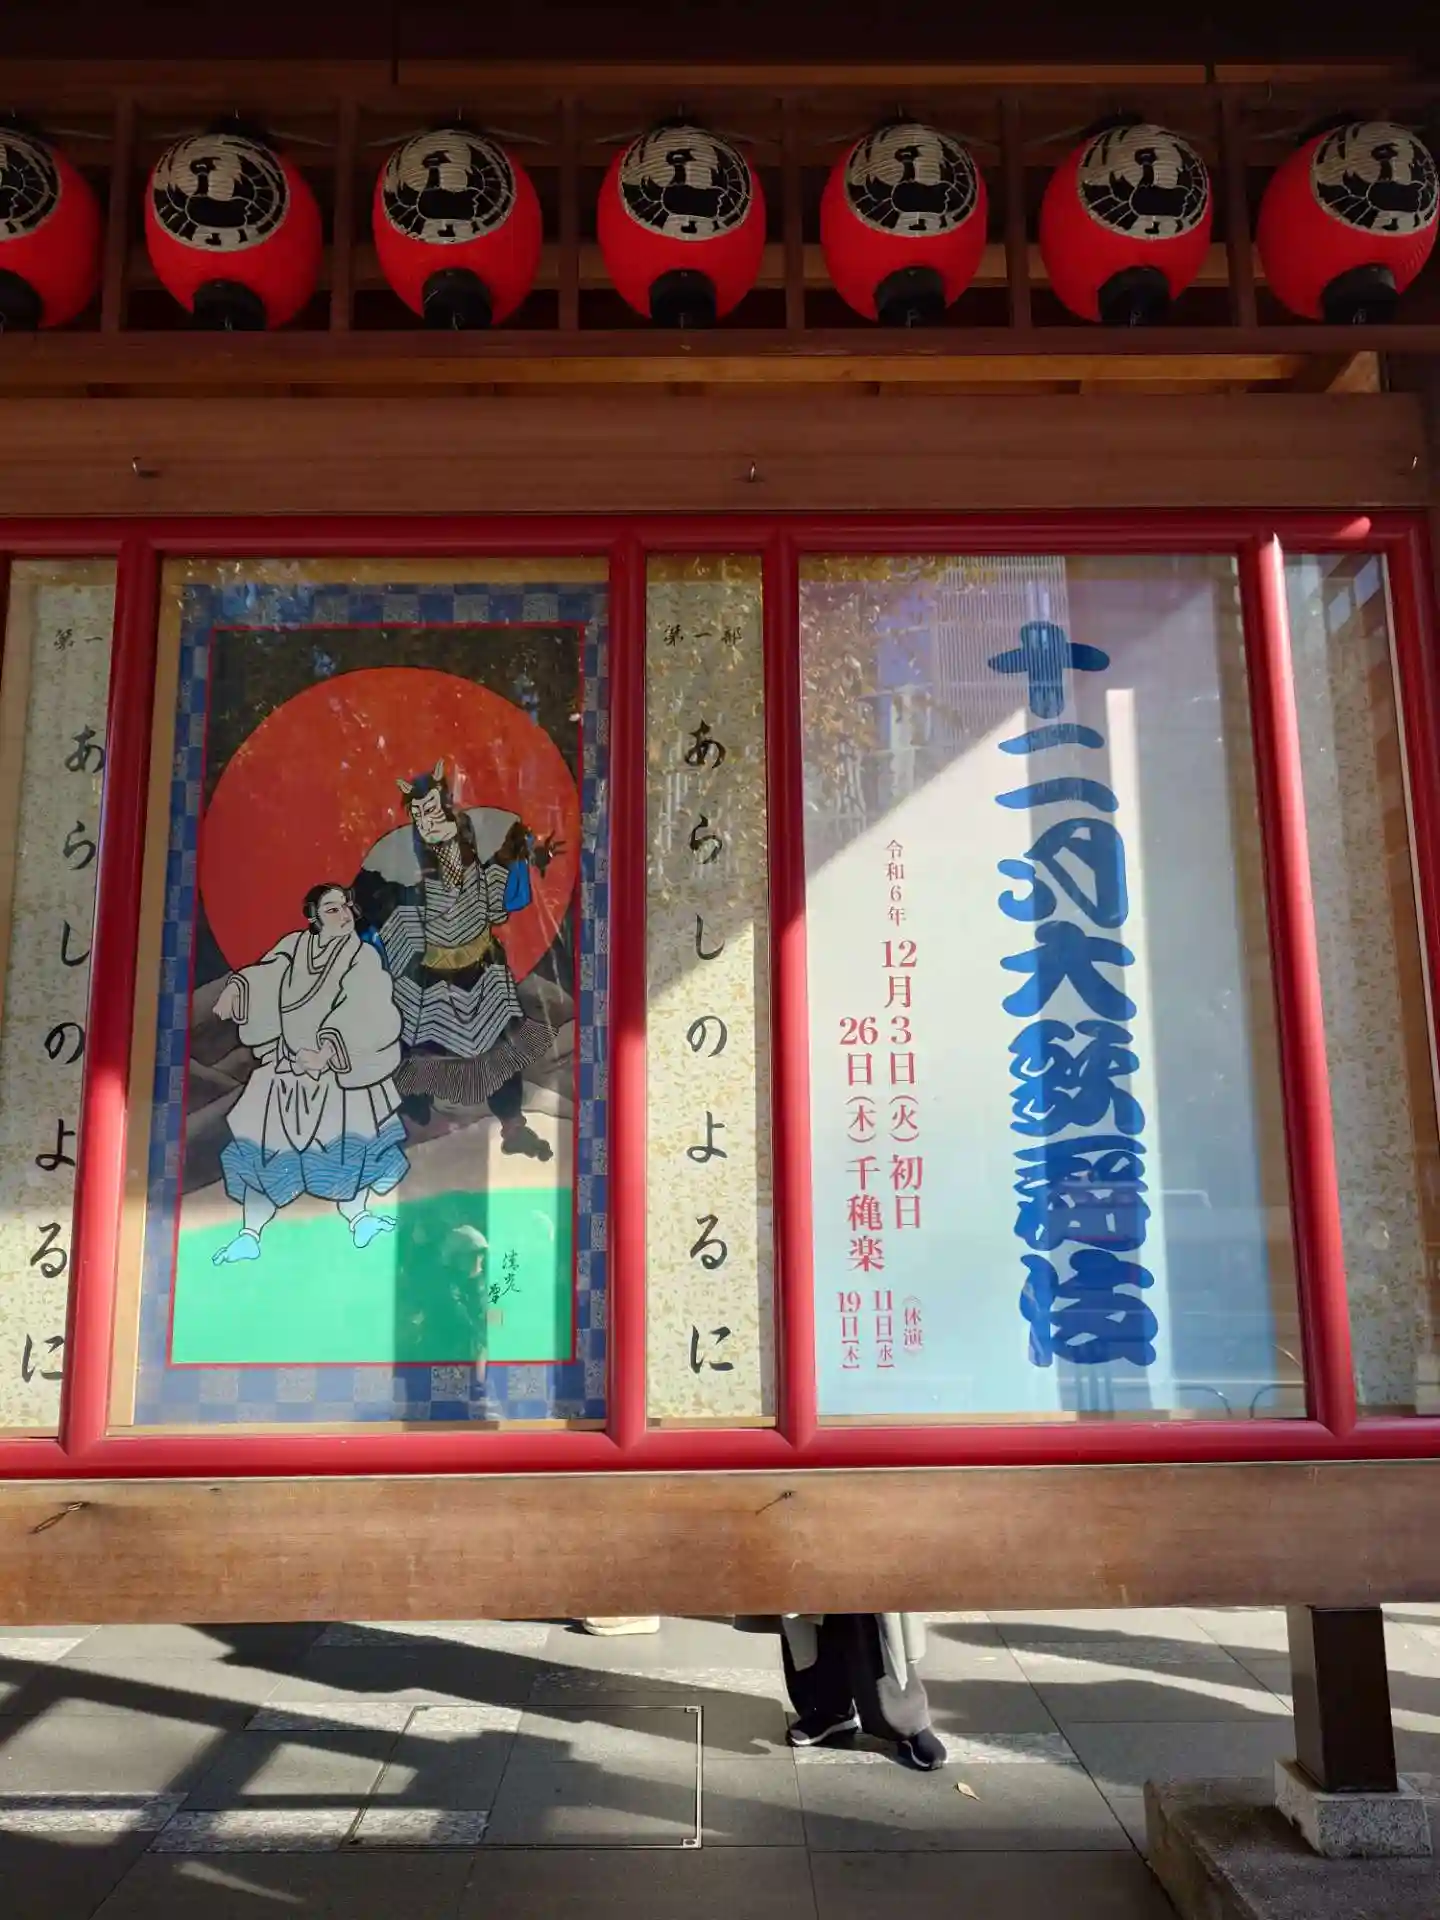 十二月大歌舞伎
令和6年
12月3日(火)初日
26日(木)千穐楽
《休演》
11日[水]
19日[木]
第一部
あらしのよるに
清光
第一
あらしのよるに